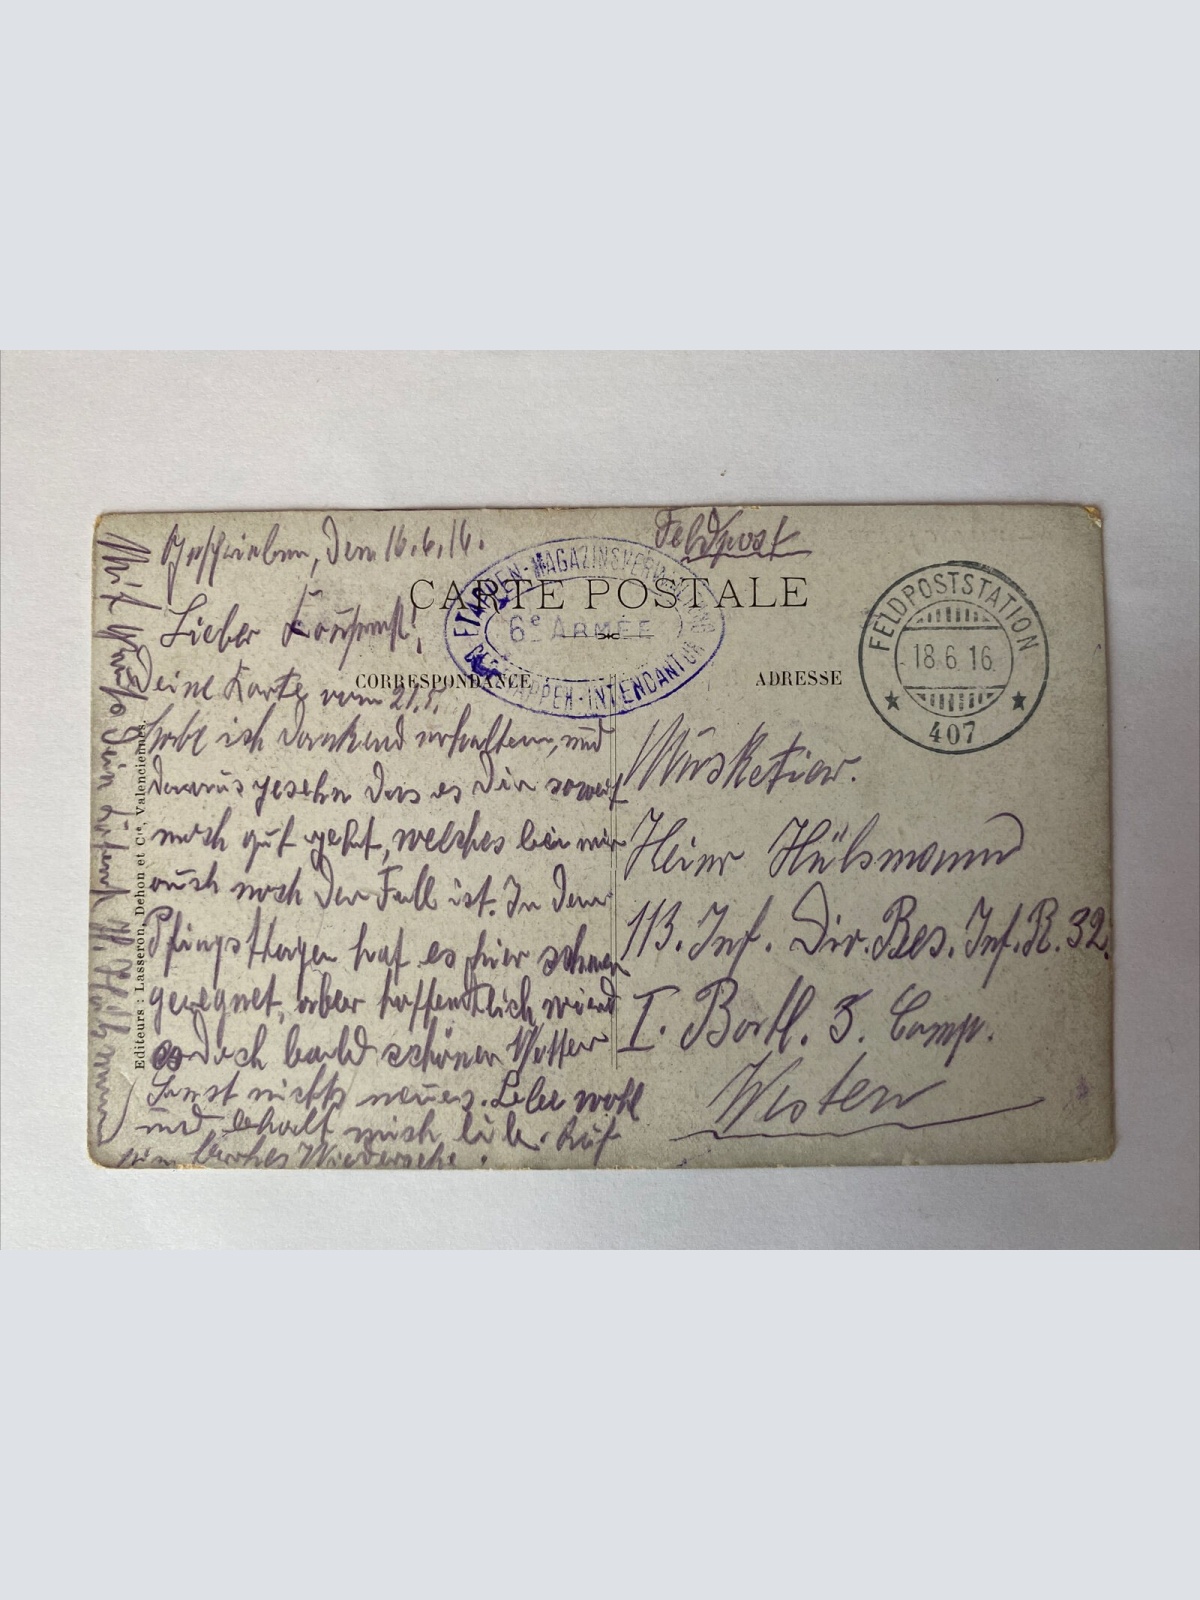 Feldpost
Geschrieben, den 16.6.16.
CARTE POSTALE
ETAPPEN-MAGAZINSVERWALTUNG
6e ARMÉE
DER ETAPPEN-INTENDANTUR
CORRESPONDANCE
ADRESSE
FELDPOSTSTATION
18.6.16.
407
Lieber
Deine Karte vom 21.5.
habe ich dankend erhalten, und
daraus gesehn das es Dir soweit
noch gut geht, welches bei mir
auch noch der Fall ist. In den
Pfingsttagen hat es hier schwer
geregnet, aber hoffentlich wird
es doch bald schöner Wetter
Sonst nichts neues. Lebe wohl
und behalt mich lieb. Auf
ein frohes Wiedersehn.
Mit Gruß Dein H. Hülsmann
Editeurs : Lasseron, Dehon et Cie, Valenciennes.
Musketier.
Heinr Hülsmann
113. Inf. Div. Res. Inf. R. 32.
I. Batl. 3. Comp.
Westen